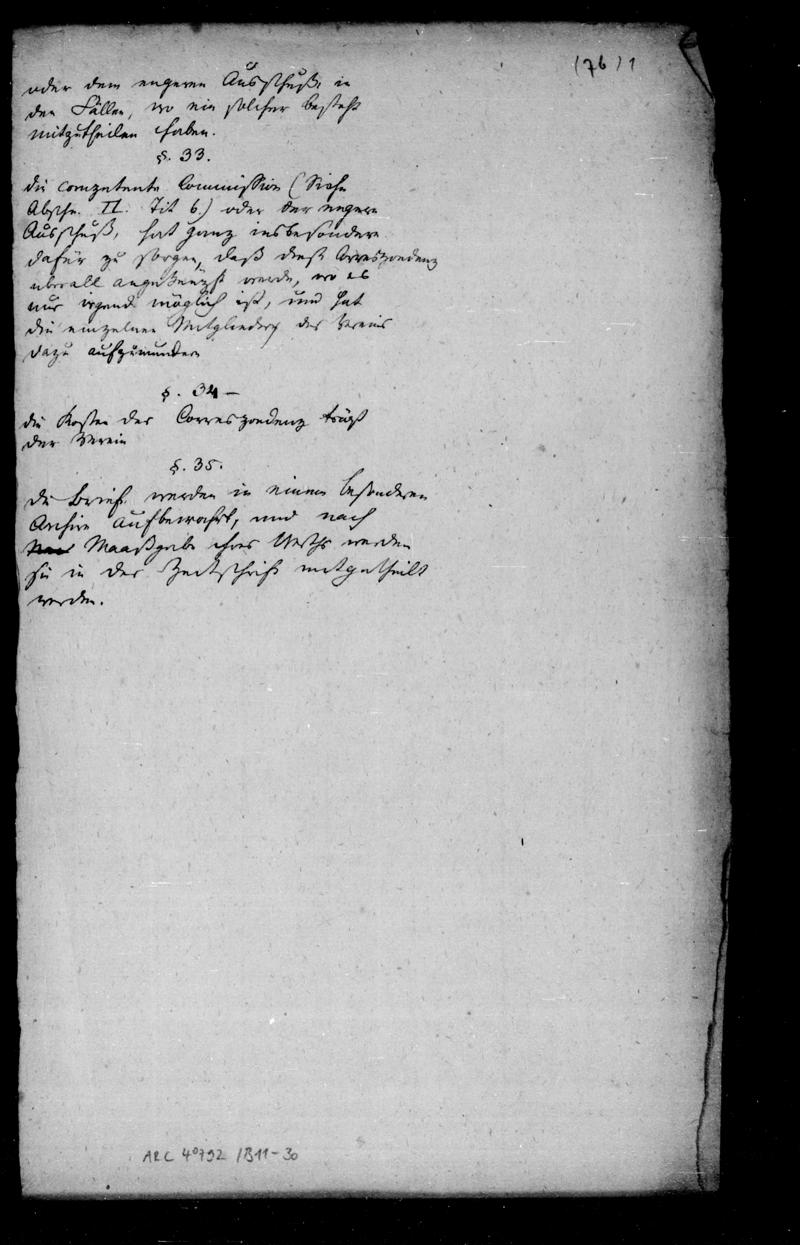 (76) 1
oder dem engeren Ausschuß, in
den Fällen, wo ein solcher besteht
mitzutheilen haben.
§. 33.
die competente Commission (Siehe
Abschn. II. Tit 6.) oder der engere
Ausschuß, hat ganz insbesondere
dafür zu sorgen, daß diese Correspondenz
überall angeknüpft werde, wo es
nur irgend möglich ist, und hat
die einzelnen Mitglieder des Vereins
dazu aufzumuntern
§. 34 –
die Kosten der Correspondenz trägt
der Verein
§. 35.
die Briefe werden in einem besonderen
Archive aufbewahrt, und nach
Maaßgabe ihres Werths werden
sie in der Zeitschrift mitgetheilt
werden.
ARC 4º792 /B11-30